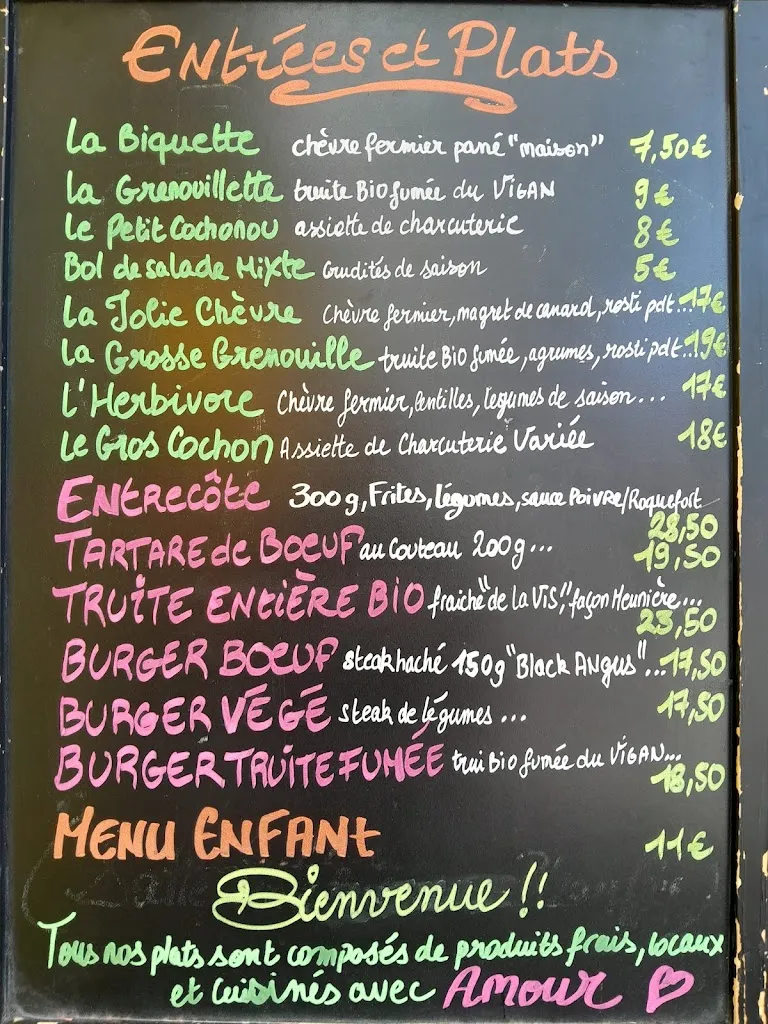 Entrées et Plats
La Biquette chèvre fermier pané "maison" 7,50€
la Grenouillette truite Bio fumée du VIGAN 9€
Le Petit Cochonou assiette de charcuterie 8€
Bol de salade Mixte Crudités de saison 5€
La Jolie Chèvre Chèvre fermier, magret de canard, rosti pdt... 17€
la Grosse Grenouille truite Bio fumée, agrumes, rosti pdt... 19€
l'Herbivore Chèvre fermier, lentilles, légumes de saison... 17€
Le Gros Cochon Assiette de Charcuterie Variée 18€
Entrecôte 300g, Frites, légumes, sauce Poivre/Roquefort
28,50
TARTARE de BOEUF au Couteau 200g... 19,50
TRUITE ENTIÈRE BIO fraiche "de La Vis", façon Meunière...
23,50
BURGER BOEUF steak haché 150g "Black Angus"... 17,50
BURGER VÉGÉ steak de légumes ... 17,50
BURGER TRUITE FUMÉE trui Bio fumée du VIGAN...
18,50
MENU ENFANT 11€
Bienvenue !!
Tous nos plats sont composés de produits frais, locaux
et Cuisinés avec Amour